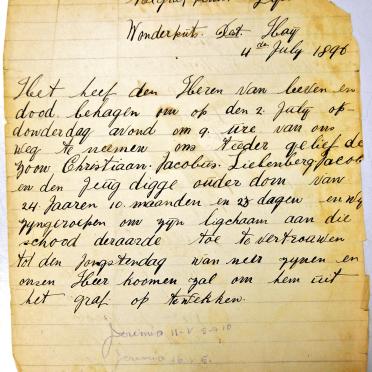 Wonderput. Dst. Hay
4de July 1896
Het heef den Heren van leeven en
dood behagen om op den 2. July op-
donderdag avond om 9. ure van ons
weg te neemen ons teeder gelief de
zoon Christiaan. Jacobus. Liebenberg. Jacob
en den Jeug digge ouder dom van
24 Jaaren 10. maanden en 28 dagen en wy
zyngeroepen om zyn ligchaam aan die
schood deraarde toe te vertrouwen
tot den Jongstendag wan neer zynen en
onsen Heer koomen zal om hem uit
het graf op tewekken.
Jeremia
Jeremia